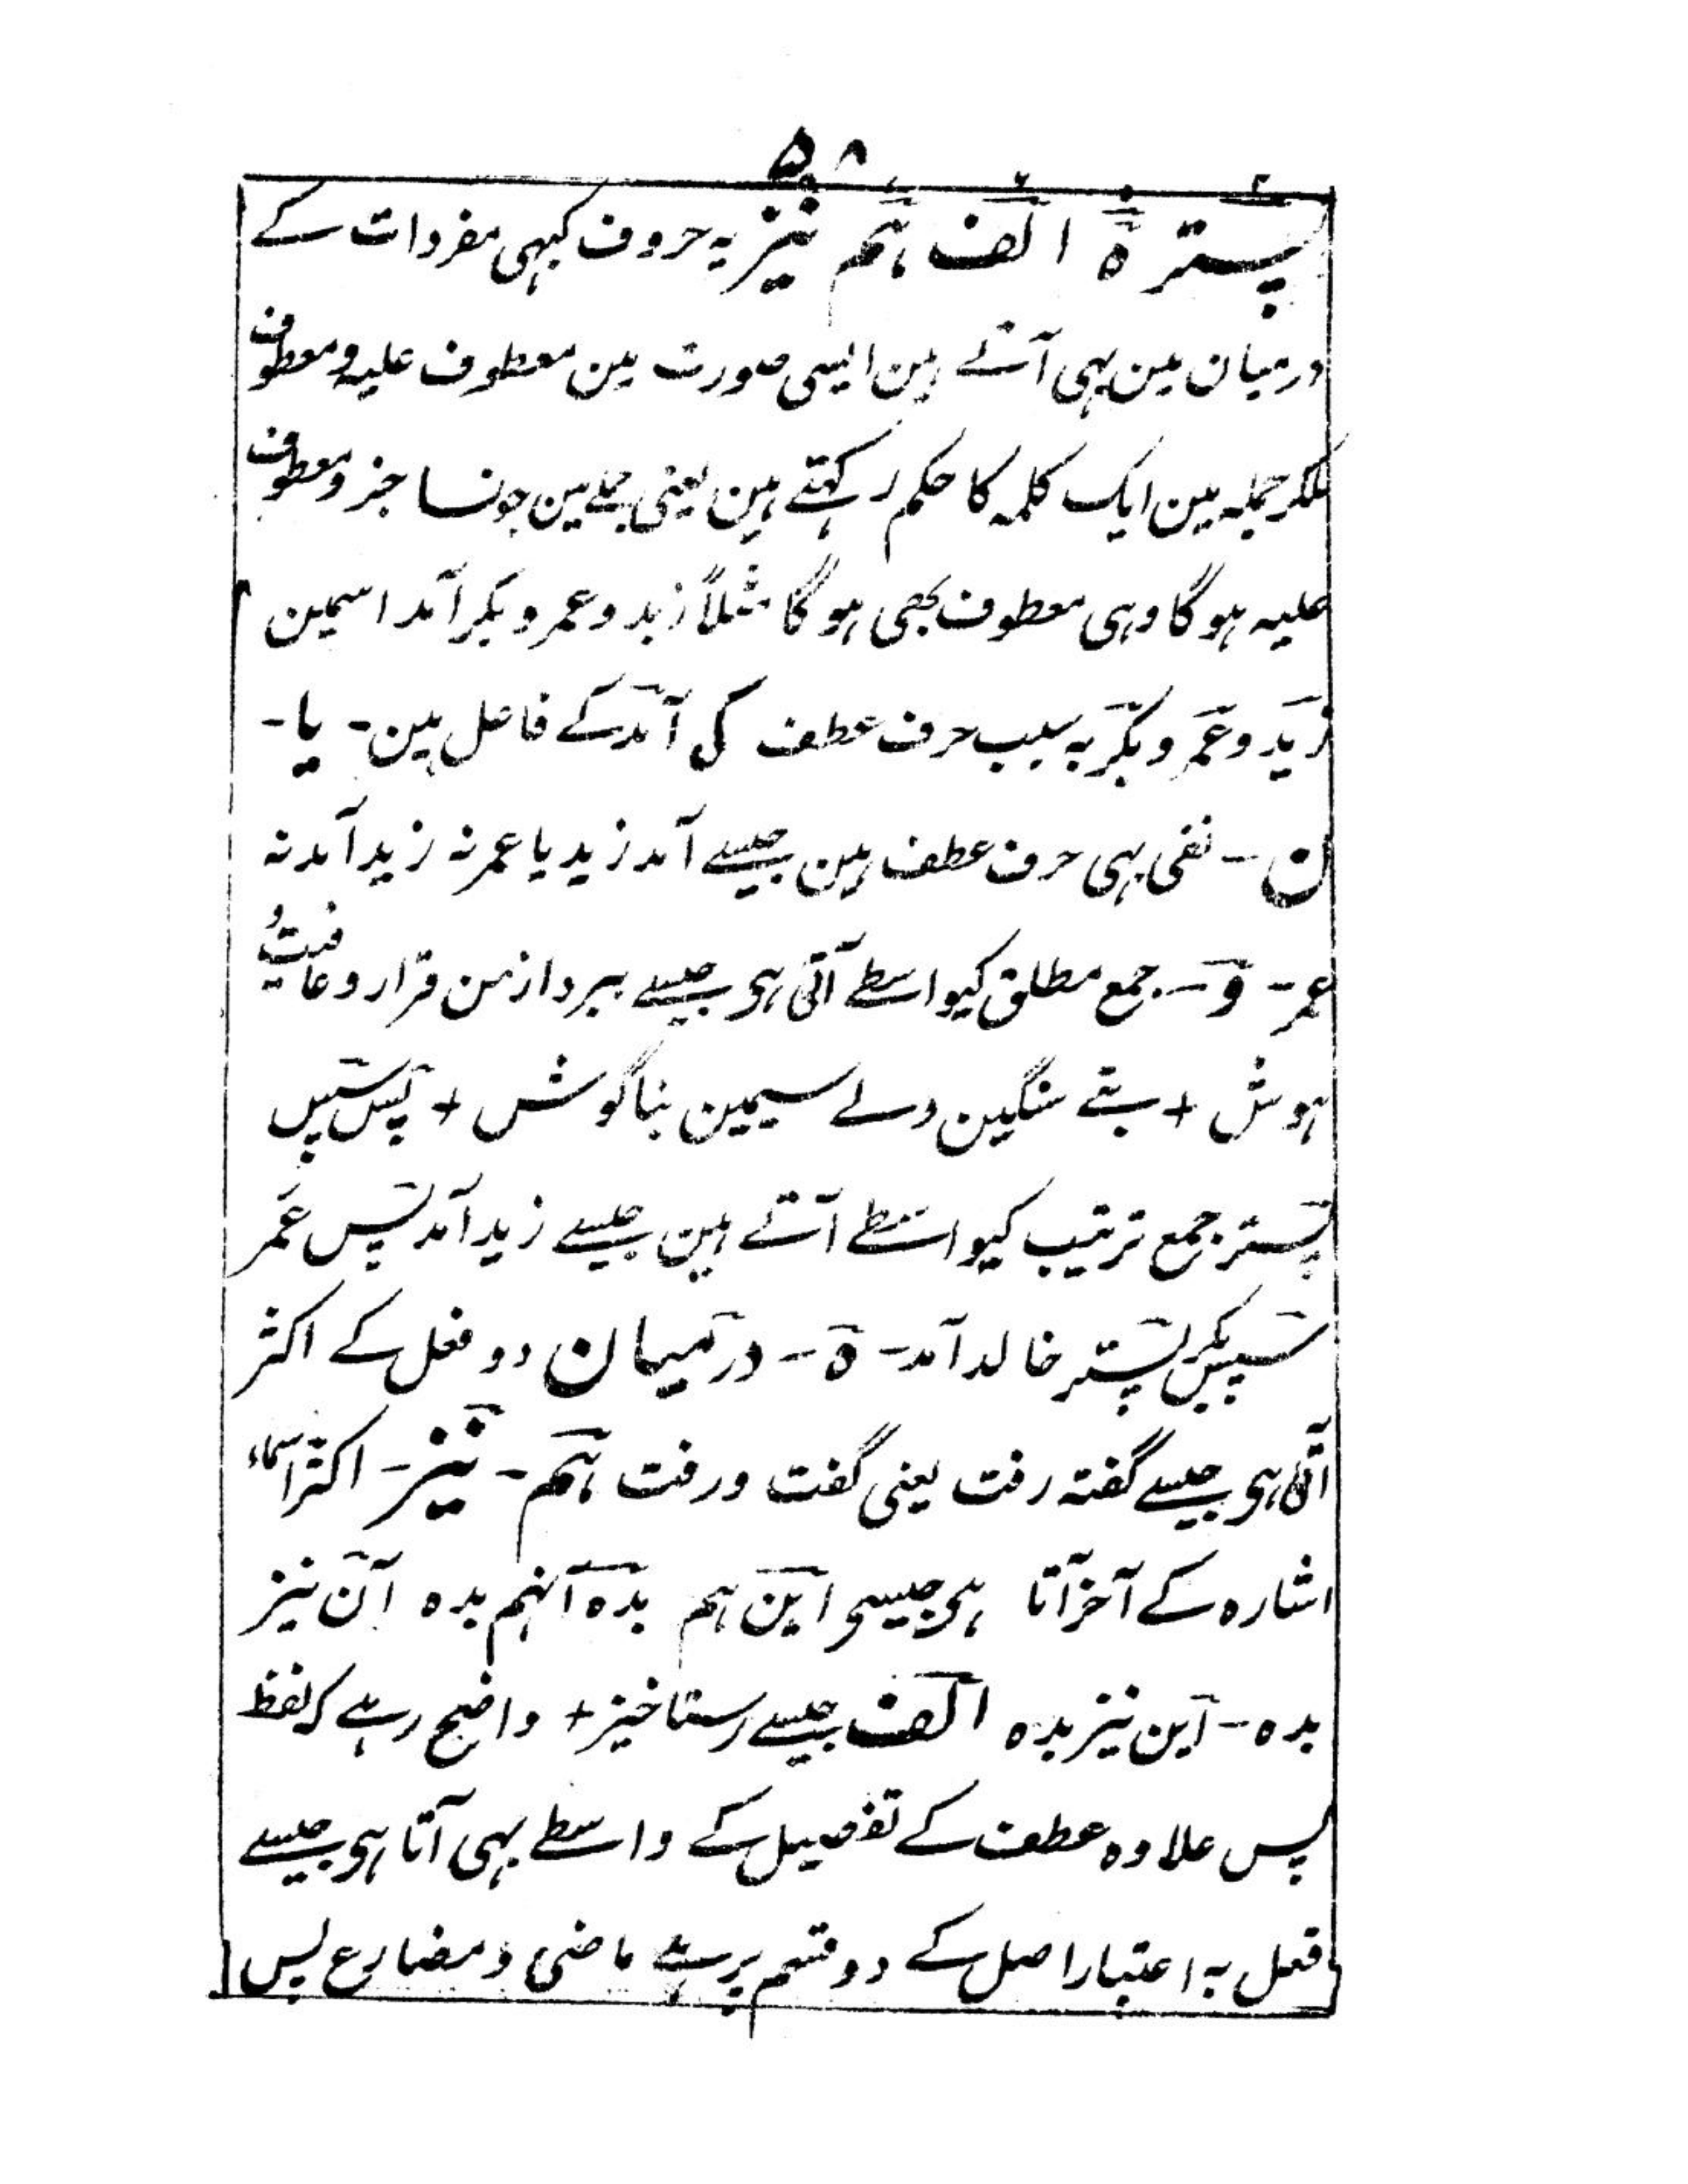 ۵۸
پستر ہ الف ہم نیز یہ حروف کبہی مفردات کے
درمیان مین بہی آتے ہین ایسی صورت مین معطوف علیہ و معطوف
ملکر جملہ مین ایک کلمہ کا حکم رکہتے ہین یعنی جملے مین جونسا جزو معطوف
علیہ ہوگا وہی معطوف بھی ہوگا مثلاً زید و عمر و بکر آمد اسمین
زید و عمر و بکر بہ سبب حرف عطف کی آمد کے فاعل ہین - یا -
ن - نفی بہی حرف عطف ہین جیسے آمد زید یا عمر نہ زید آمد نہ
عمر - و - جمع مطلق کیواسطے آتی ہی جیسے ببرد از من قرار و عافیت و
ہوش + بتے سنگین دلے سیمین بناگوش + پس سپس
پستر جمع ترتیب کیواسطے آتے ہین جیسے زید آمد پس عمر
سپس بکر پستر خالد آمد - ہ - درمیان دو فعل کے اکثر
آتی ہی جیسے گفتہ رفت یعنی گفت و رفت ہم - نیز - اکثر اسماء
اشارہ کے آخر آتا ہی جیسی این ہم بدہ آنہم بدہ آن نیز
بدہ - این نیز بدہ الف جیسے رستاخیز + واضح رہے کہ لفظ
پس علاوہ عطف کے تفصیل کے واسطے بہی آتا ہی جیسے
فعل بہ اعتبار اصل کے دو قسم پر ہے ماضی و مضارع پس